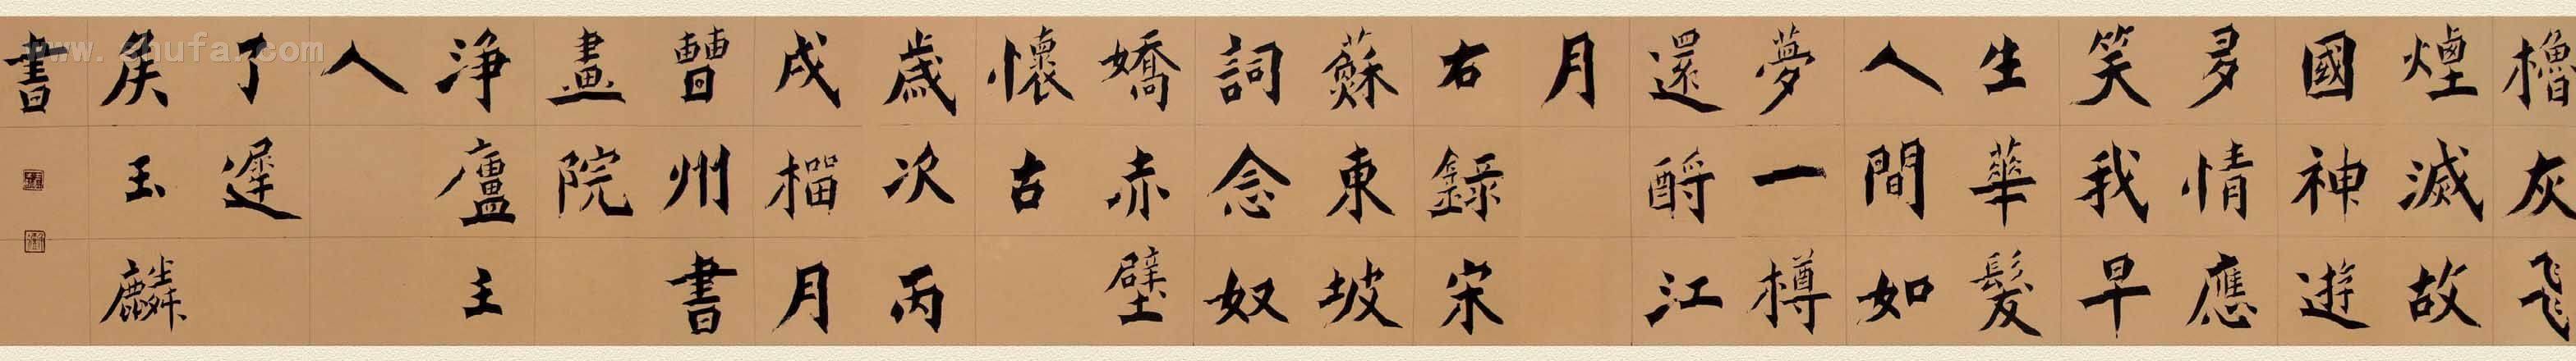 櫓灰飛
煙滅故
國神遊
多情應
笑我早
生華髮
人間如
夢一樽
還酹江
月
右錄宋
蘇東坡
詞念奴
嬌赤壁
懷古
歲次丙
戌榴月
曹州書
畫院
淨廬主
人
了遲
侯玉麟
書
www.shufa.com